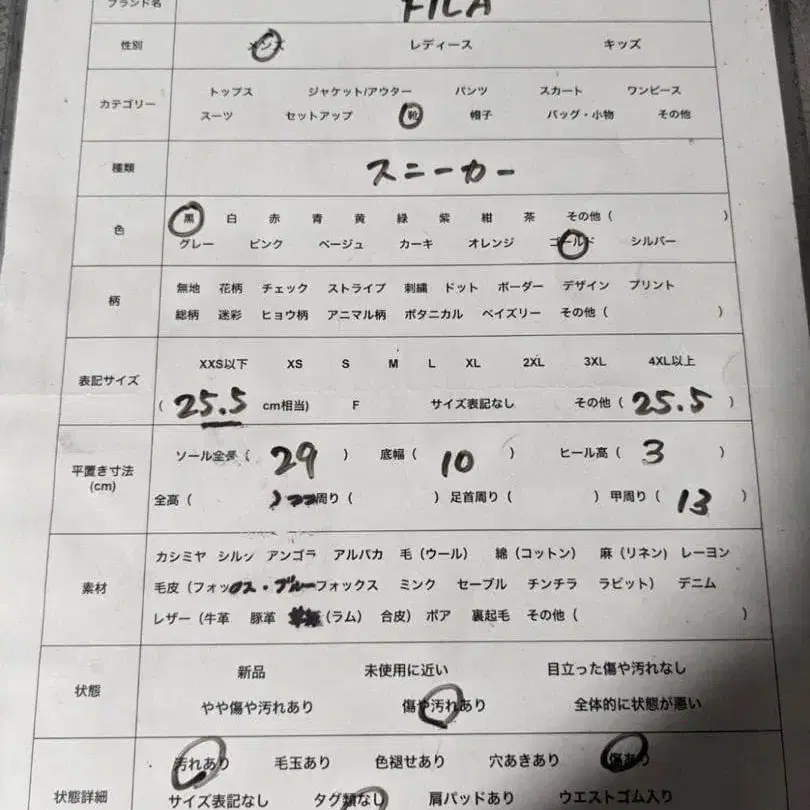 ブランド名 FILA
性別 メンズ レディース キッズ
カテゴリー トップス ジャケット/アウター パンツ スカート ワンピース
スーツ セットアップ 靴 帽子 バッグ・小物 その他
種類 スニーカー
色 黒 白 赤 青 黄 緑 紫 紺 茶 その他( )
グレー ピンク ベージュ カーキ オレンジ ゴールド シルバー
柄 無地 花柄 チェック ストライプ 刺繍 ドット ボーダー デザイン プリント
総柄 迷彩 ヒョウ柄 アニマル柄 ボタニカル ペイズリー その他( )
表記サイズ XXS以下 XS S M L XL 2XL 3XL 4XL以上
( 25.5 cm相当) F サイズ表記なし その他( 25.5 )
平置き寸法 (cm) ソール全長( 29 ) 底幅( 10 ) ヒール高( 3 )
全高( ) 周り( ) 足首周り( ) 甲周り( 13 )
素材 カシミヤ シルク アンゴラ アルパカ 毛(ウール) 綿(コットン) 麻(リネン) レーヨン
毛皮(フォックス・ブルーフォックス ミンク セーブル チンチラ ラビット) デニム
レザー(牛革 豚革 (ラム) 合皮) ボア 裏起毛 その他( )
状態 新品 未使用に近い 目立った傷や汚れなし
やや傷や汚れあり 傷や汚れあり 全体的に状態が悪い
状態詳細 汚れあり 毛玉あり 色褪せあり 穴あきあり 傷あり
サイズ表記なし タグ類なし 肩パッドあり ウエストゴム入り